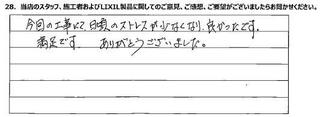 28. 当店のスタッフ、施工者およびLIXIL製品に関してのご意見、ご感想、ご要望がございましたらお聞かせください。
今回の工事にて日頃のストレスが少なくなり、良かったです。
満足です。 ありがとうございました。